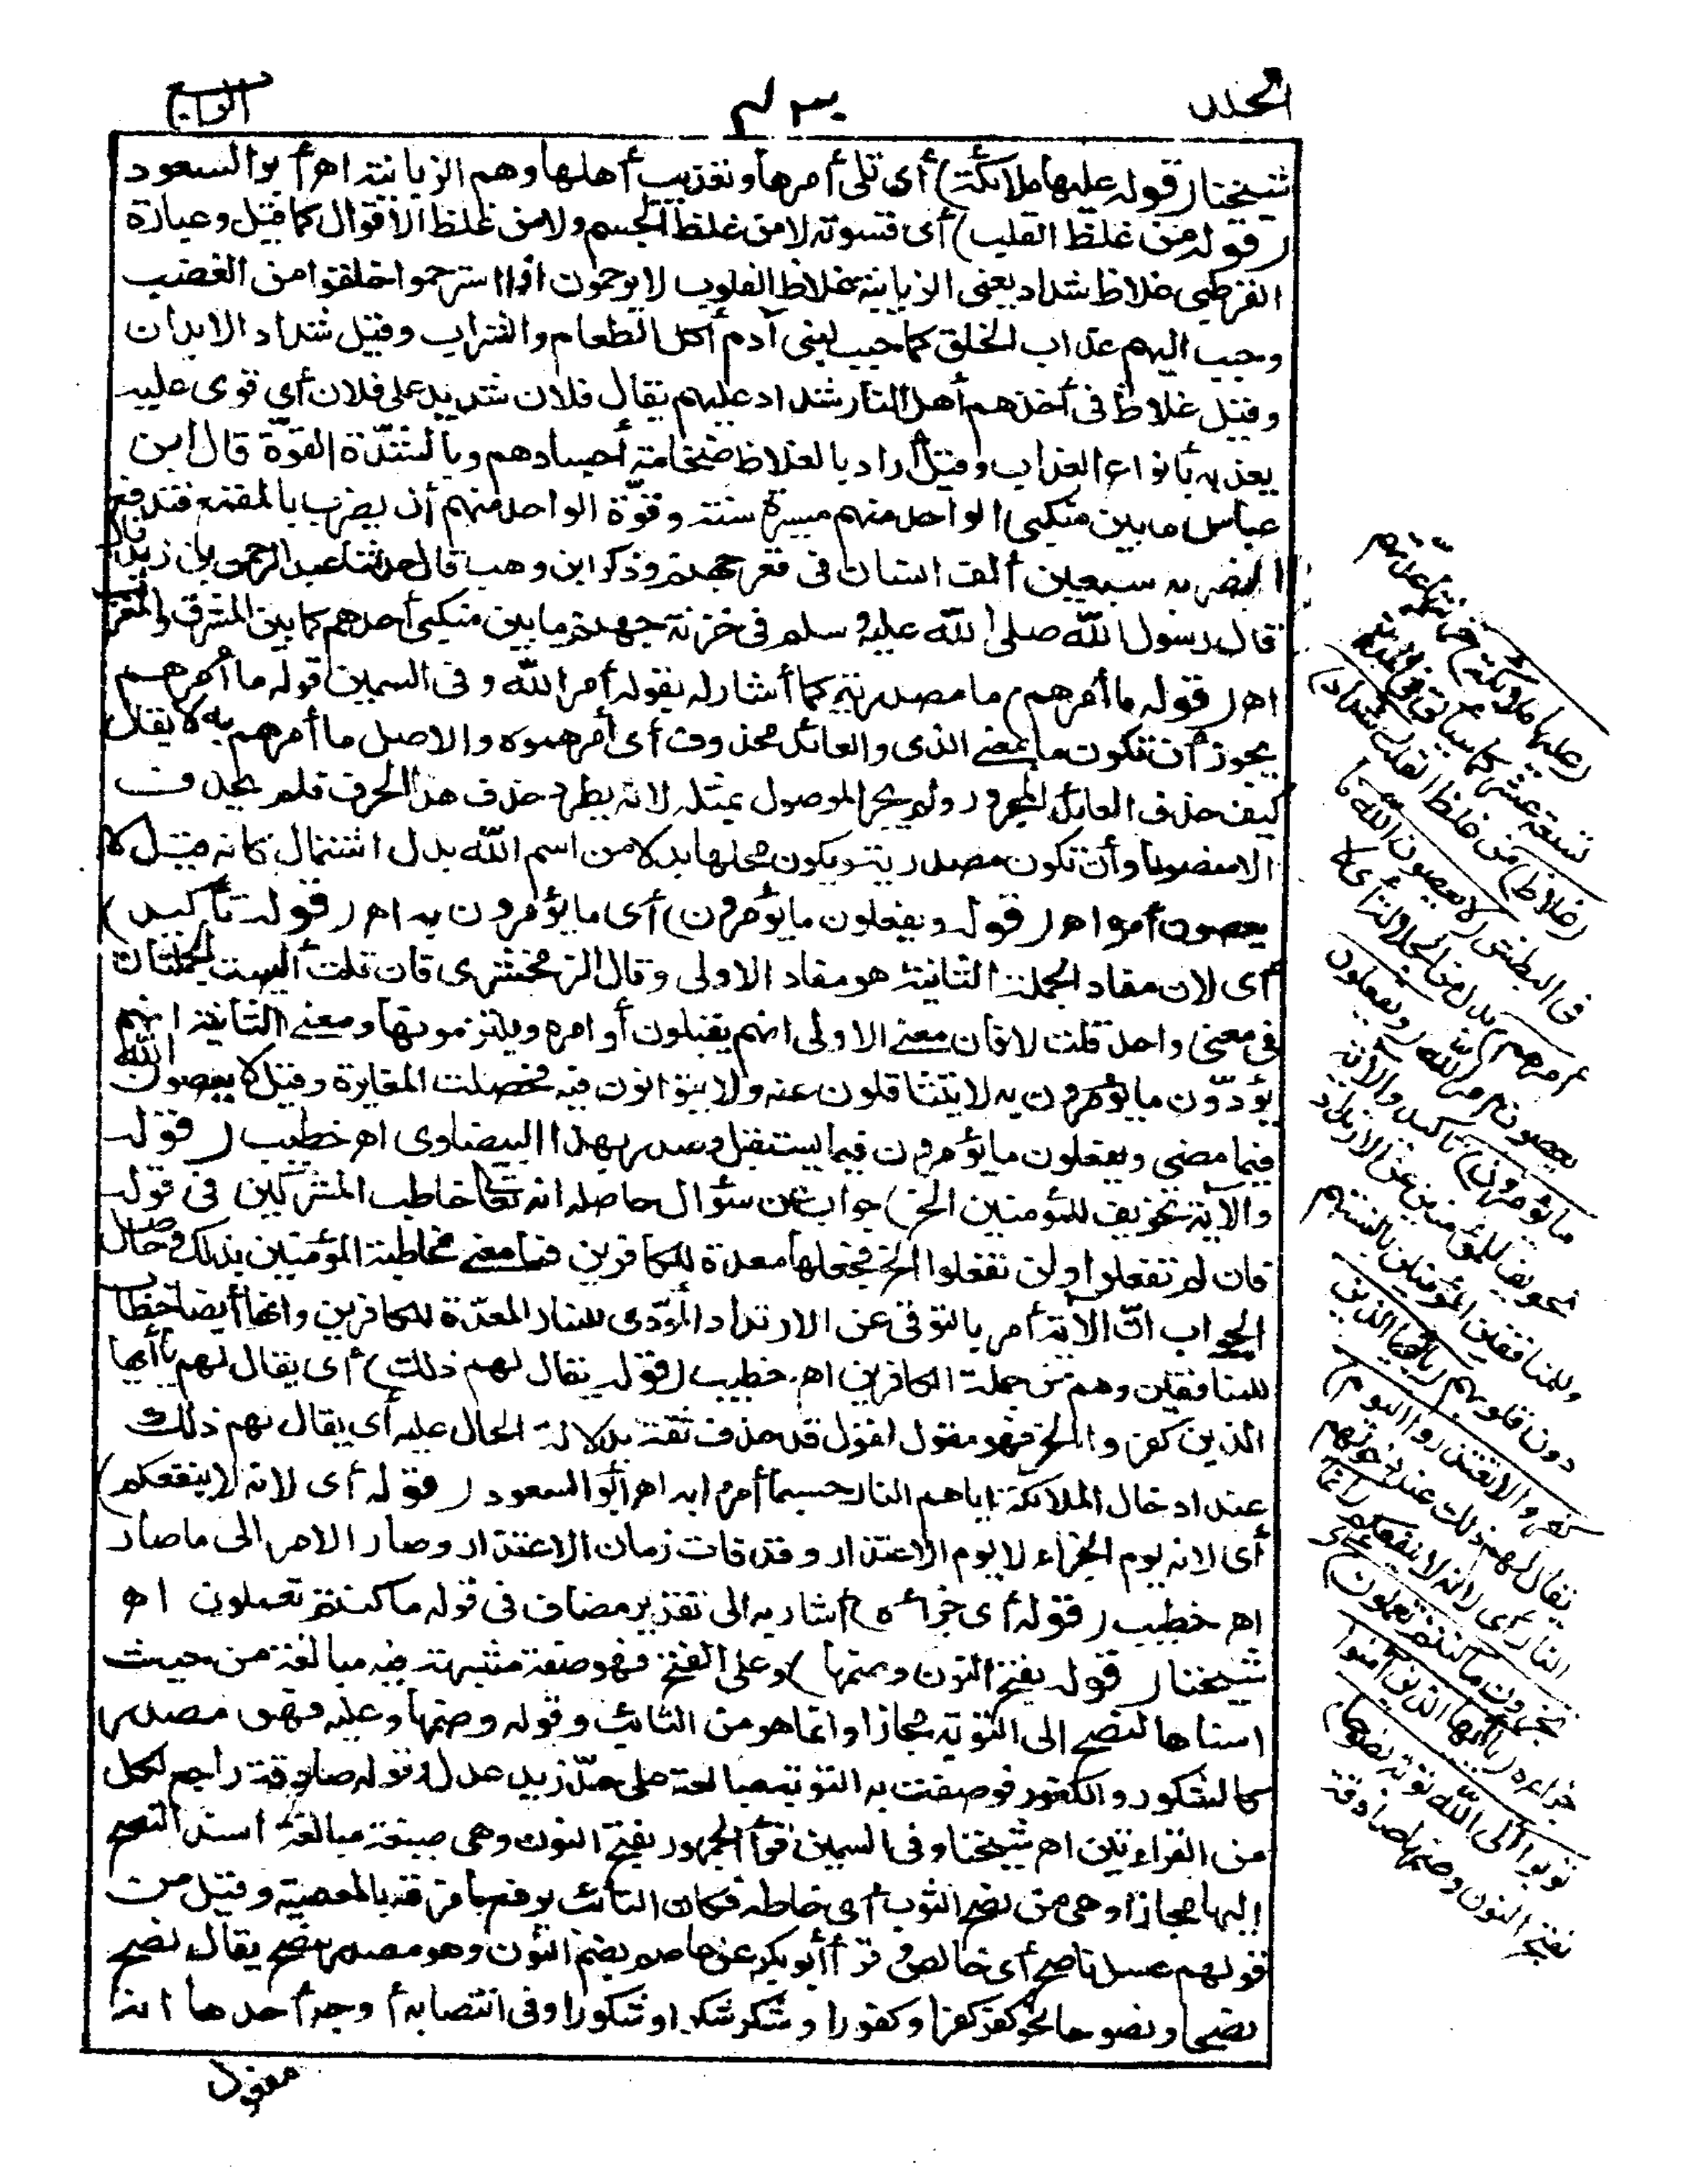 المجلد
الرابع
شيخنا (قوله عليها ملائكة) أى تلى أمرها وتعذيب أهلها وهم الزبانية اهـ أبو السعود
(قوله من غلظ القلب) أى قسوته لا من غلظ الجسم ولا من غلظ الأقوال كما قيل وعبارة
القرطبى غلاظ شداد يعنى الزبانية غلاظ القلوب لا يرحمون اذا استرحموا خلقوا من الغضب
وحبب اليهم عذاب الخلق كما حبب لبنى آدم أكل الطعام والشراب وقيل شداد الابدان
وقيل غلاظ فى أخذهم أهل النار شداد عليهم يقال فلان شديد على فلان أى قوى عليه
يعذبه بأنواع العذاب وقيل أراد بالغلاظ ضخامة أجسادهم وبالشدّة القوّة قال ابن
عباس ما بين منكبى الواحد منهم مسيرة سنة وقوّة الواحد منهم أن يضرب بالمقمع فتدفع
الضربة سبعين ألف انسان فى قعر جهنم وذكر ابن وهب قال حدثنا عبد الرحمن بن زيد قال
قال رسول الله صلى الله عليه وسلم فى خزنة جهنم ما بين منكبى أحدهم كما بين المشرق والمغرب
اهـ (قوله ما أمرهم) ما مصدرية كما أشار له بقوله أمر الله وفى السمين قوله ما أمرهم
يجوز أن تكون ما بمعنى الذى والعائد محذوف أى أمرهموه والاصل ما أمرهم به لا يقال
كيف حذف العائد المجرور ولم يجر الموصول بمثله لانه يطرد حذف هذا الحرف فلم يحذف
الا منصوبا وأن تكون مصدرية ويكون محلها بدلا من اسم الله بدل اشتمال كأنه قيل لا
يعصون أمره اهـ (قوله ويفعلون ما يؤمرون) أى ما يؤمرون به اهـ (قوله تأكيد)
أى لان مفاد الجملة الثانية هو مفاد الاولى وقال الزمخشرى فان قلت أليست الجملتان
فى معنى واحد قلت لا فان معنى الاولى انهم يقبلون أوامره ويلتزمونها ومعنى الثانية انهم
يؤدّون ما يؤمرون به لا يتثاقلون عنه ولا يتوانون فيه فحصلت المغايرة وقيل لا يعصون الله
فيما مضى ويفعلون ما يؤمرون فيما يستقبل وصدر بهذا البيضاوى اهـ خطيب (قوله
والآية تخويف للمؤمنين الخ) جواب عن سؤال حاصله انه تعالى خاطب المشركين فى قوله
فان لم تفعلوا ولن تفعلوا الخ فجعلها معدة للكافرين فما معنى مخاطبة المؤمنين بذلك وحاصل
الجواب انّ الآية أمر بالتوقى عن الارتداد المؤدّى للنار المعدّة للكافرين وانها أيضا خطاب
للمنافقين وهم من جملة الكافرين اهـ خطيب (قوله يقال لهم ذلك) أى يقال لهم يا أيها
الذين كفروا الخ فهو مقول لقول قد حذف ثقة بدلالة الحال عليه أى يقال لهم ذلك
عند ادخال الملائكة اياهم النار حسبما أمروا به اهـ أبو السعود (قوله أى لانه لا ينفعكم)
أى لانه يوم الجزاء لا يوم الاعتذار وقد فات زمان الاعتذار وصار الامر الى ما صار
اهـ خطيب (قوله أى جزاءه) أشار به الى تقدير مضاف فى قوله ما كنتم تعملون اهـ
شيخنا (قوله بفتح النون وضمها) وعلى الفتح فهو صفة مشبهة فيه مبالغة من حيث
اسناد النصح الى التوبة مجازا وانما هو من التائب وقوله وضمها وعليه فهو مصدر
كالشكور والكفور فوصفت به التوبة مبالغة على حدّ زيد عدل وقوله صادقة راجع لكل
من القراءتين اهـ شيخنا وفى السمين قرأ الجمهور بفتح النون وهى صيغة مبالغة أسند النصح
إليها مجازا وهى من نصح الثوب أى خاطه فكان التائب يرقع ما خرقه بالمعصية وقيل من
قولهم عسل ناصح أى خالص وقرأ أبو بكر عن عاصم بضم النون وهو مصدر نصح يقال نصح
نصحا ونصوحا نحو كفر كفرا وكفورا وشكر شكرا وشكورا وفى انتصابه أوجه أحدها انه
مفعول
(عليها ملائكة) خزنتها عدّتهم
تسعة عشر كما سيأتى فى المدثر
(غلاظ) من غلظ القلب (شداد)
فى البطش (لا يعصون الله ما
أمرهم) بدل من الجلالة أى لا
يعصون أمر الله (ويفعلون
ما يؤمرون) تأكيد والآية
تخويف للمؤمنين عن الارتداد
وللمنافقين المؤمنين بألسنتهم
دون قلوبهم (يا أيها الذين
كفروا لا تعتذروا اليوم)
يقال لهم ذلك عند دخولهم
النار أى لانه لا ينفعكم (انما
تجزون ما كنتم تعملون) أى
جزاءه (يا أيها الذين آمنوا
توبوا الى الله توبة نصوحا)
بفتح النون وضمها صادقة